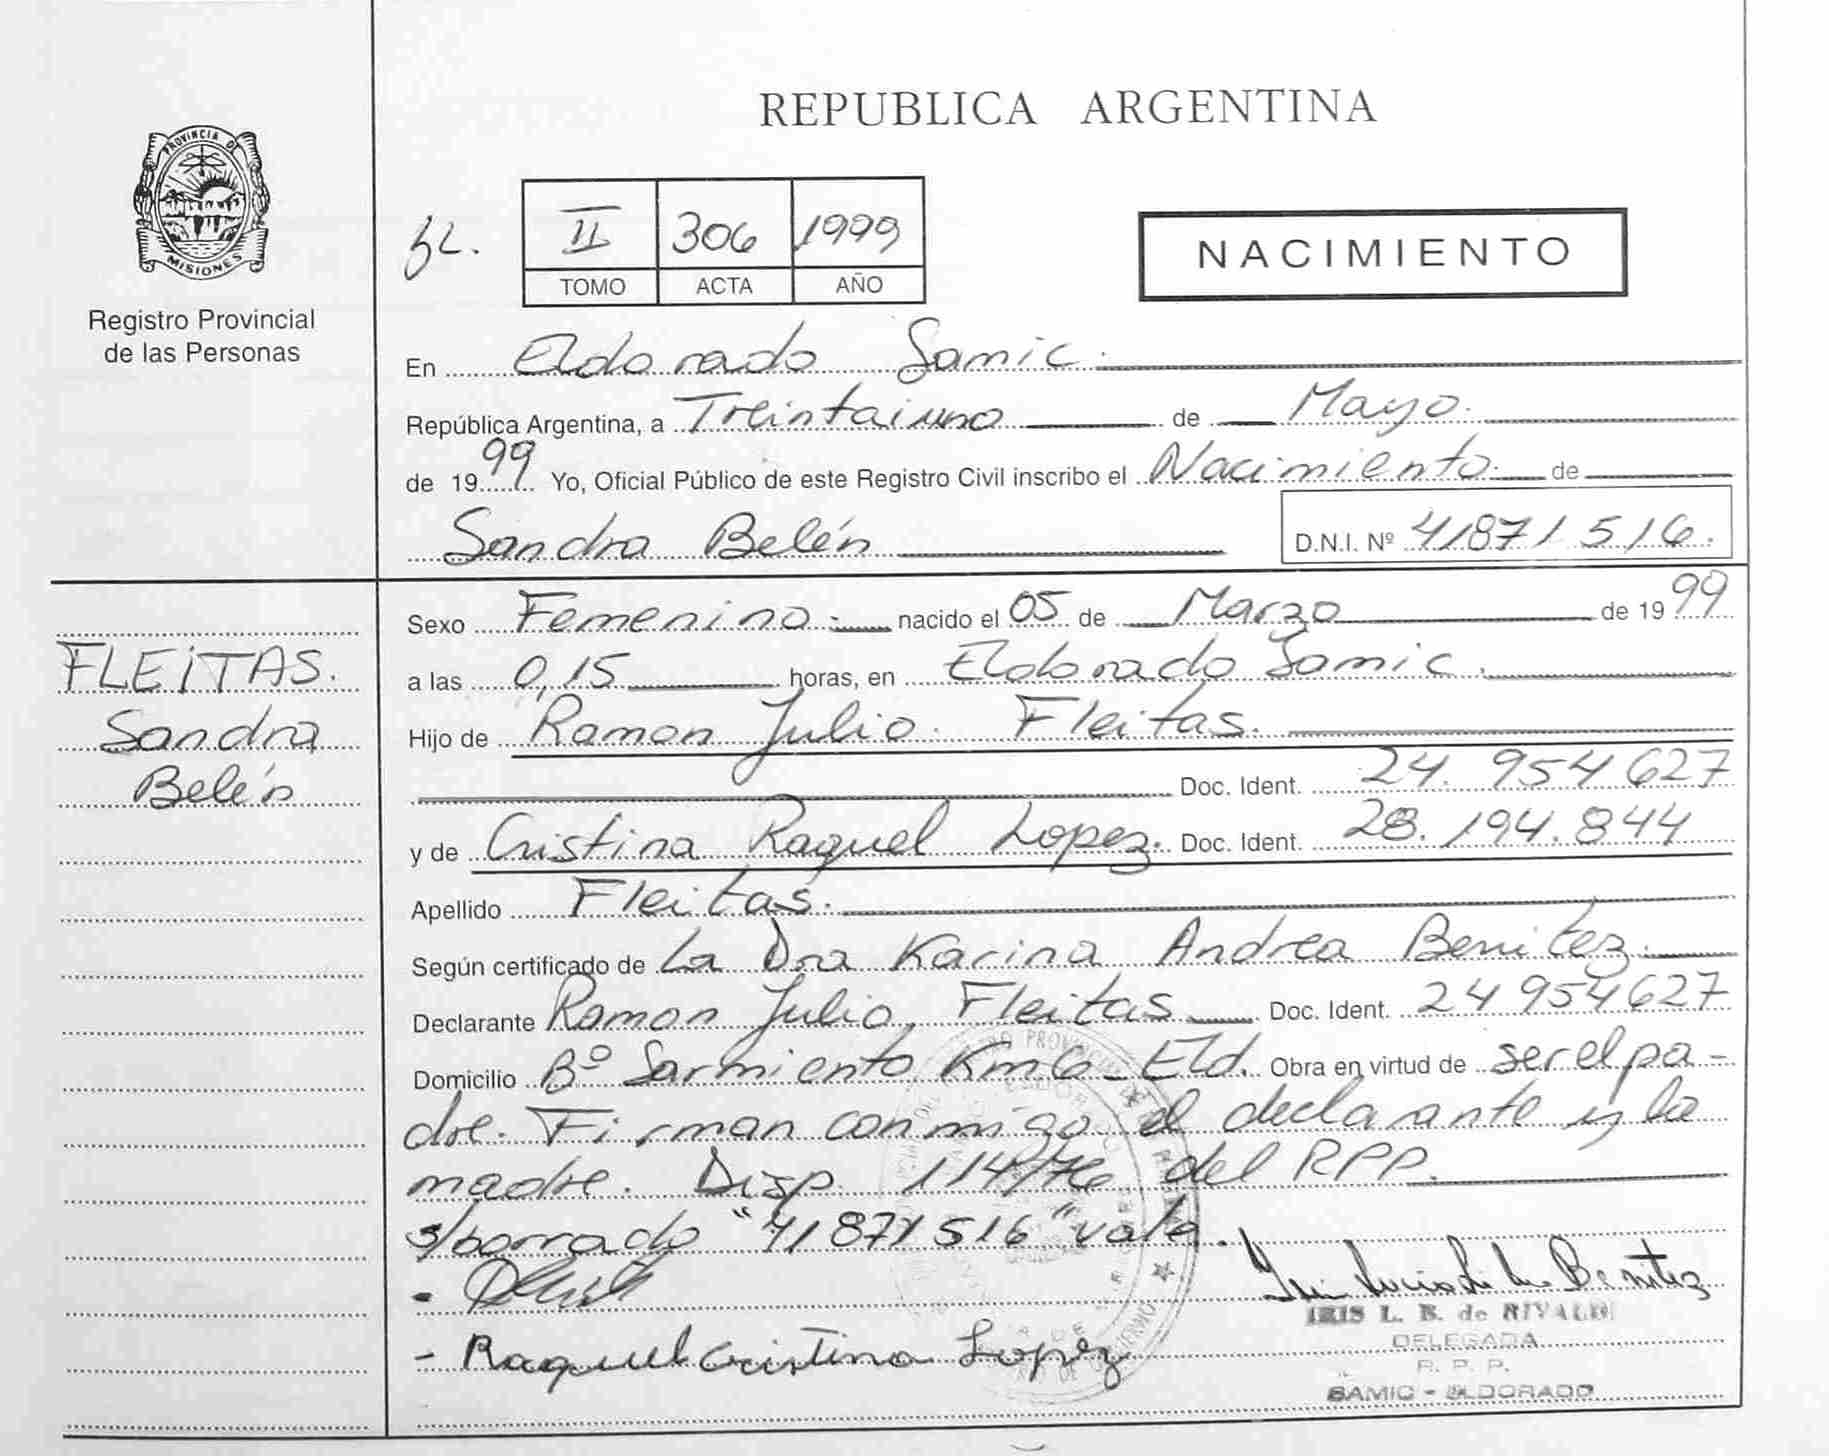 REPUBLICA ARGENTINA
PROVINCIA DE
MISIONES
Registro Provincial
de las Personas
II 306 1999
TOMO ACTA AÑO
NACIMIENTO
En Eldorado Samic.
República Argentina, a Treintaiuno de Mayo.
de 1999 Yo, Oficial Público de este Registro Civil inscribo el Nacimiento. de
Sandra Belén D.N.I. Nº 41871516.
FLEITAS.
Sandra
Belén
Sexo Femenino. nacido el 05 de Marzo de 1999
a las 0,15 horas, en Eldorado Samic.
Hijo de Ramon Julio. Fleitas.
Doc. Ident. 24.954627
y de Cristina Raquel Lopez. Doc. Ident. 28.194.844
Apellido Fleitas.
Según certificado de La Dra Karina Andrea Benitez.
Declarante Ramon Julio Fleitas Doc. Ident. 24954627
Domicilio Bº Sarmiento Km6 - Eld. Obra en virtud de ser el pa-
dre. Firman conmigo el declarante y la
madre. Disp. 114/76 del RPP.
s/borrado "41871516" vale.
- Raquel Cristina Lopez
Benitez
IRIS L. B. de RIVALDI
DELEGADA
R. P. P.
SAMIC - ELDORADO